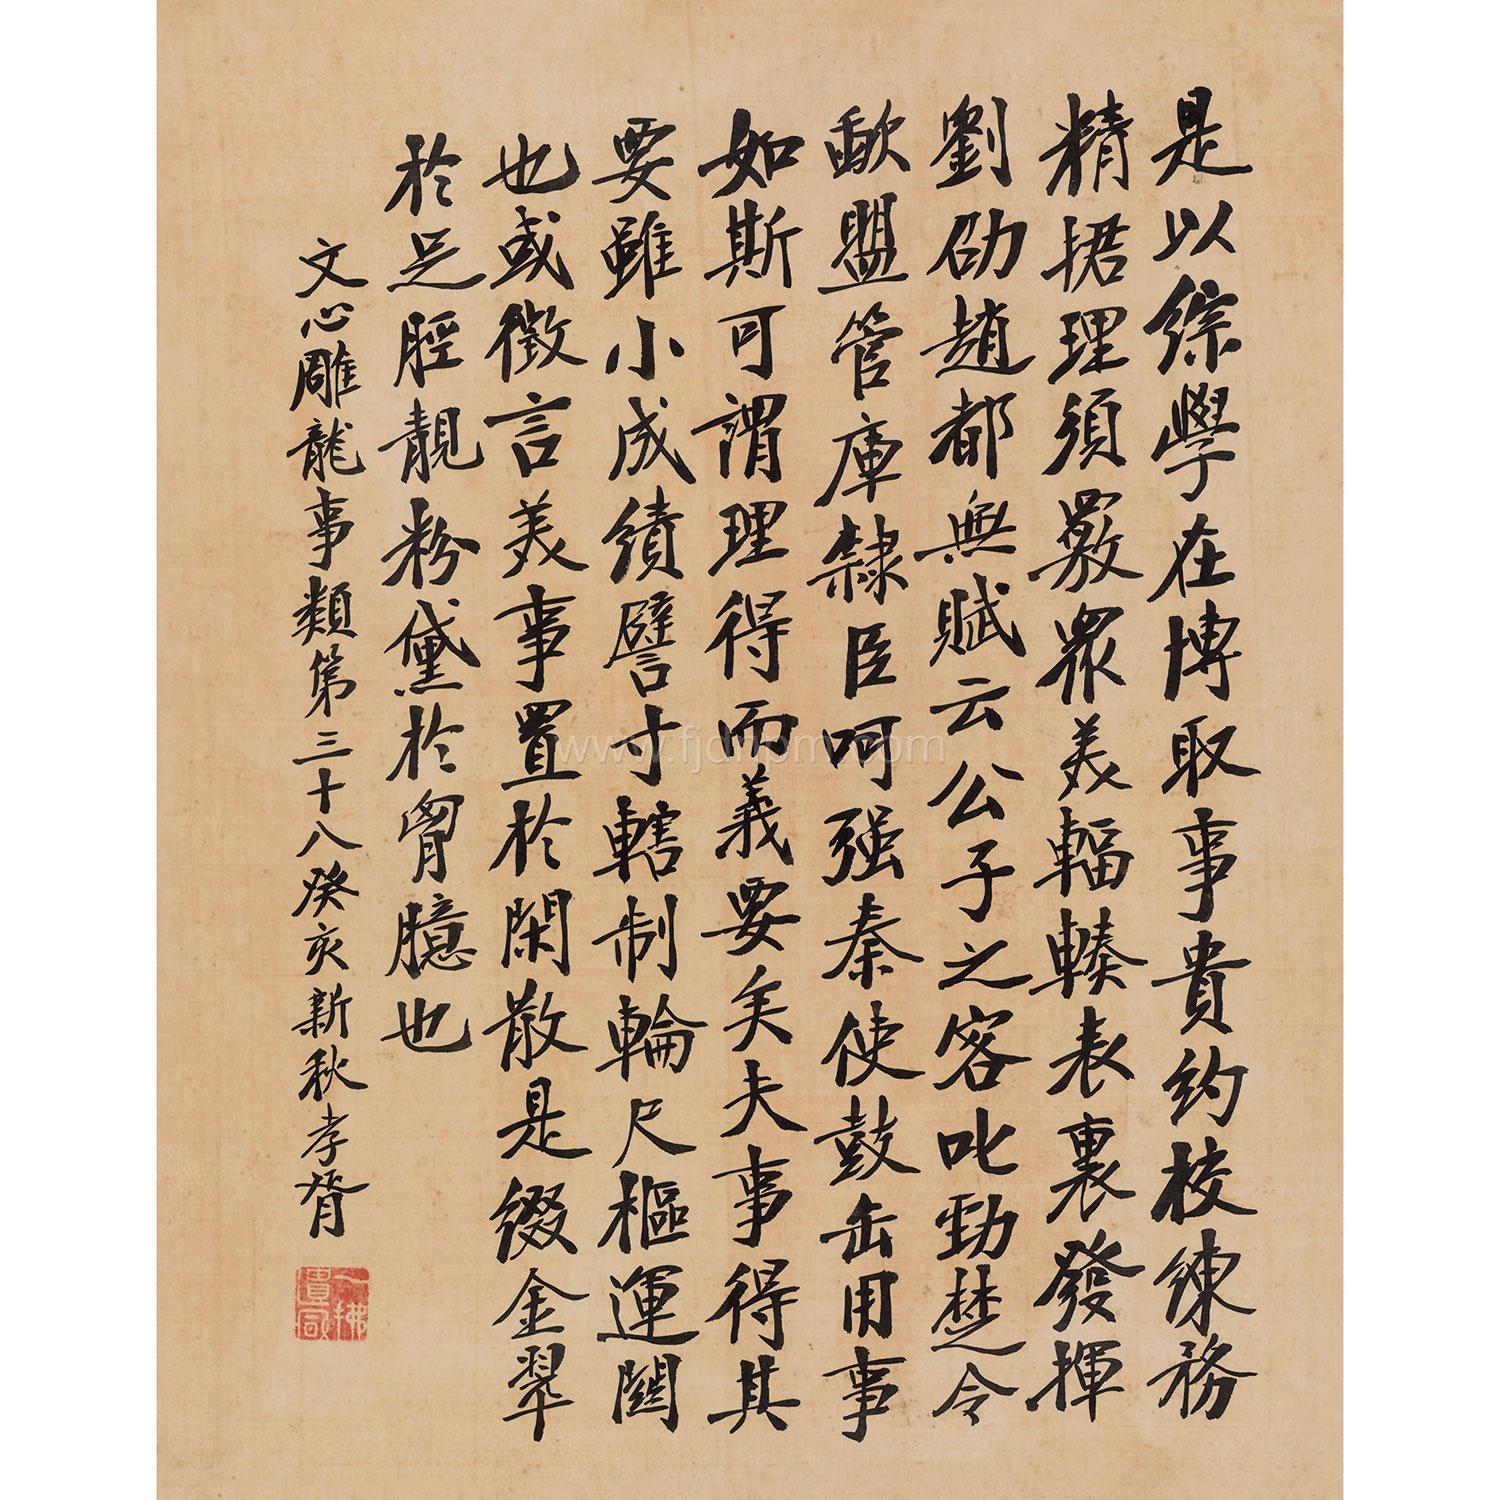 是以綜學在博取事貴約校練務
精捃理須覈眾美輻輳表裏發揮
劉劭趙都無賦云公子之客叱勁楚令
歃盟管庫隸臣呵强秦使鼓缶用事
如斯可謂理得而義要矣夫事得其
要雖小成績譬寸轄制輪尺樞運關
也或微言美事置於閑散是綴金翠
於足脛靚粉黛於胷臆也
文心雕龍事類第三十八癸亥新秋孝胥
www.fjdnpm.com